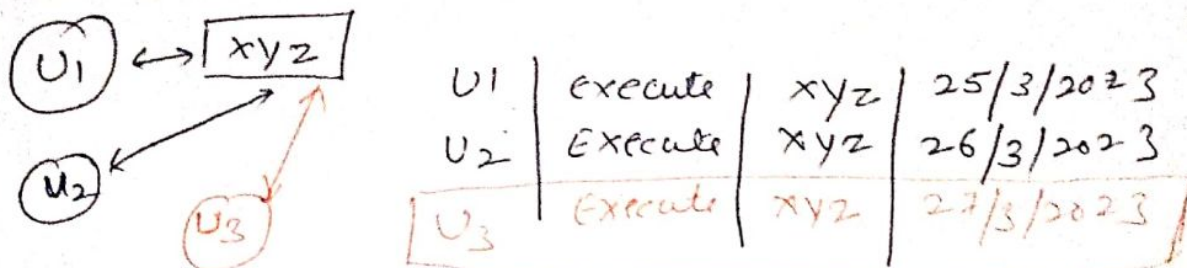 U1 ↔ xyz
U2
U3
U1 | execute | xyz | 25/3/2023
U2 | Execute | xyz | 26/3/2023
U3 | Execute | xyz | 27/3/2023